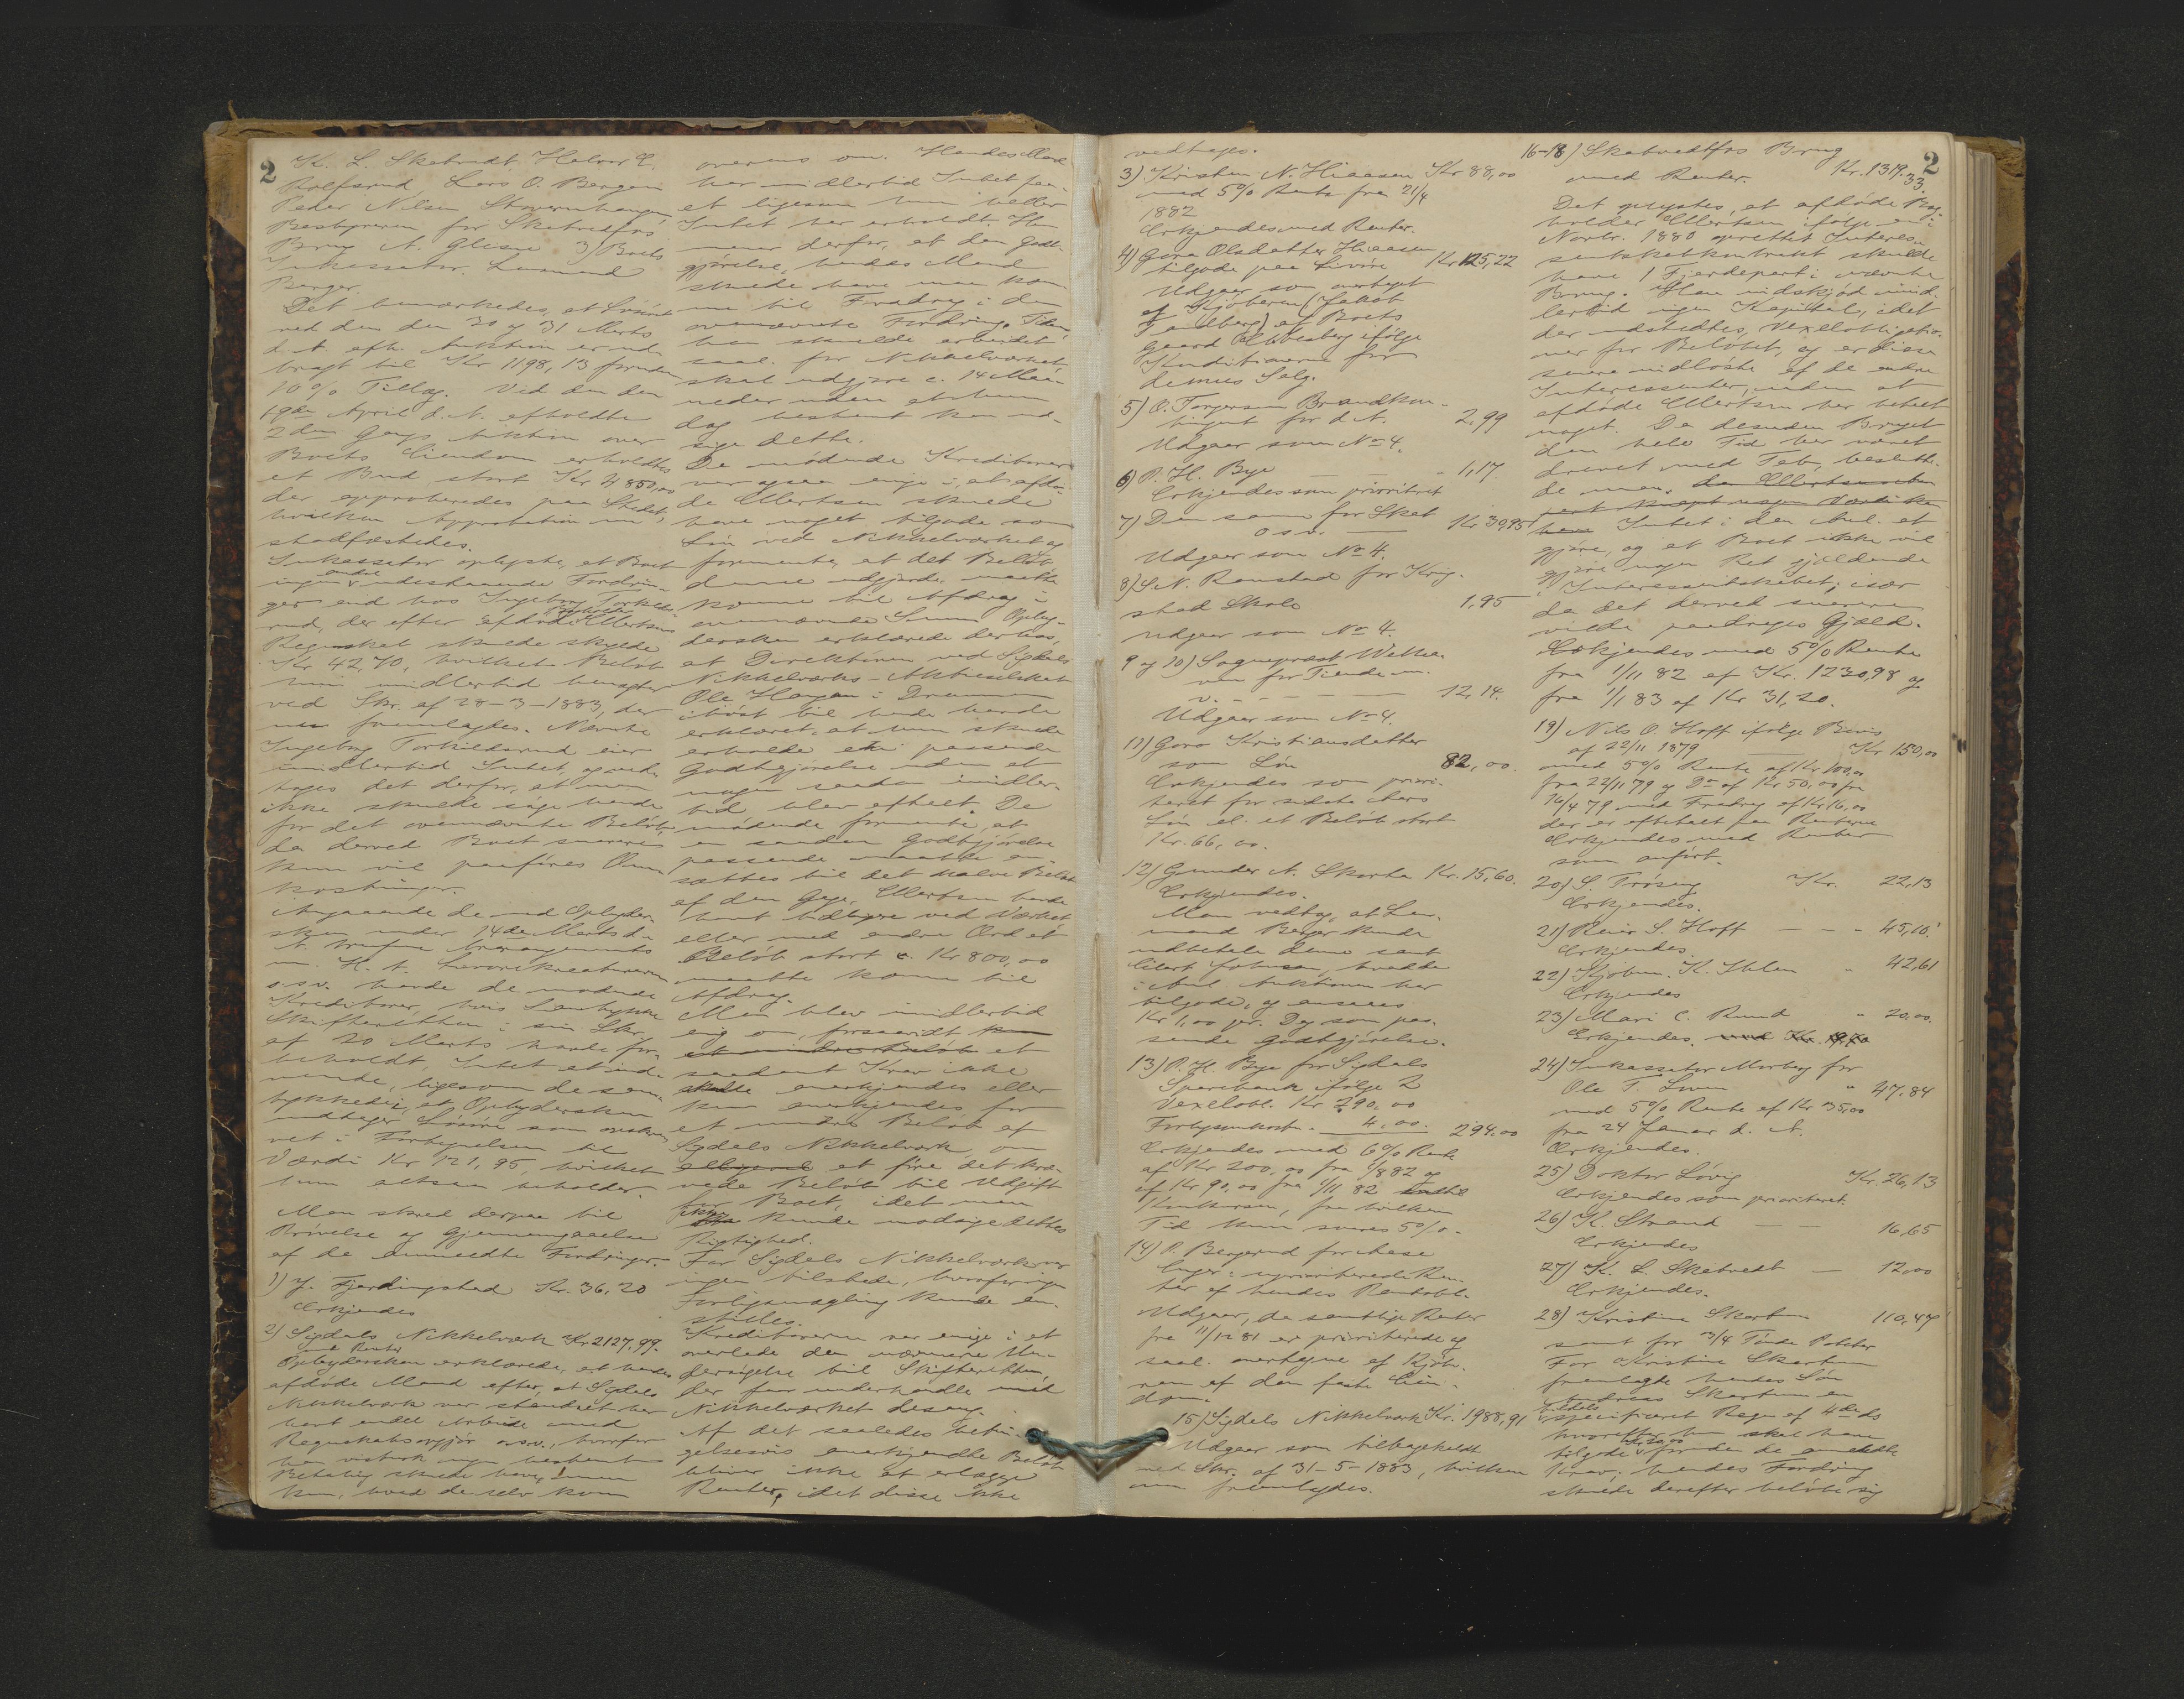 2
K. L. Skatvedt, Halvor E.
Rolfsrud, Lars O. Bergan
Peder Nilsen
Bestyreren for Skatvedfos
Brug A. Glesne 3) Boets
Inkassator, Lensmand
Berger.
Det bemærkedes, at Løsøret
ved den den 30 og 31 Marts
d. A. afh. Auktion er ud-
bragt til Kr 1198,13 foruden
10 % Tillæg. Ved den den
19de April d. A. afholdte
2den Gangs Auktion over
Boets Eiendom erholdtes
et Bud stort Kr 4850,00
der approberedes paa Stedet,
hvilken Approbation nu
stadfæstedes.
Inkassator oplyste, at Boet
ingen andre udestaaende Fordrin-
ger end hos Ingeborg Torkilds-
rud, der efter afdøde Ellertsens
Regnskab skulde skylde
Kr 42,70, hvilket Beløb
hun imidlertid benægter
ved Skr. af 28-3-1883, der
nu fremlagdes. Nævnte
Ingeborg Torkildsrud eier
imidlertid Intet, og vedtoges det derfor, at man
ikke skulde søge hende
for det ovennævnte Beløb,
da derved Boet snarere
kun vil paaføres Om-
kostninger.
Angaaende de med Opbyder-
sken under 14de Marts d.
A. trufne Arrangements
m. H. t. Levendekreaturerne
o.s.v. havde de mødende
Kreditorer, hvis Samtykke
Skifteretten i sin Skr.
af 20 Marts havde for-
beholdt, Intet at ind-
vende, ligesom de sam-
tykkede i, at Opbydersken
modtager Løsøre som
vet i Fortegnelsen til
Værdi Kr 121,95, hvilket
hun altsaa beholder.
Man skred derpaa til
Prøvelse og Gjennemgaaelse
af de anmeldte Fordringer.
1) J. Fjerdingstad Kr. 36,20
Erkjendes
2) Sigdals Nikkelværk Kr 2127,99.
med Renter
Opbydersken erklærede, at hendes
afdøde Mand efter, at Sigdals
Nikkelværk var standset har
havt endel Arbeide med
Regnskabsopgjør o.s.v., hvorfor
han vistnok ingen bestemt
Betaling skulde have, men
kun, hvad de selv kom
overens om. Hendes Mand
har imidlertid Intet faa-
et ligesom hun heller
Intet har erholdt. Hun
mener derfor, at den Godt-
gjørelse, hendes Mand
skulde have maa kom-
me til Fradrag i den
ovennævnte Fordring. Tiden
han skulde arbeidet
saal. for Nikkelværket
skal udgjøre c. 14 Maa-
neder uden at hun
dog bestemt kan ud-
sige dette.
De mødende Kreditorer
var ogsaa enige i, at afdø-
de Ellertsen skulde
have noget tilgode som
Løn ved Nikkelværket og
formente, at det Beløb,
denne udgjorde, maatte
komme til Afdrag i
ovennævnte Summa. Opby-
dersken erklærede derhos,
at Direktøren ved Sigdals
Nikkelværks-Aktieselskab
Ole Haugan i Drammen
ihøst til hende havde
erklæret, at hun skulde
erholde en passende
Godtgjørelse uden at
nogen saadan imidler-
tid blev aftalt. De
mødende formente, at
en saadan Godtgjørelse
passende maatte an-
sættes til det halve Beløb
af den Gage, Ellertsen havde
havt tidligere ved Værket
eller med andre Ord et
Beløb stort c. Kr 800,00
maatte komme til
Afdrag.
Man blev imidlertid
enig om, forsaavidt
et mindre Beløb et
saadant Krav ikke
skulde anerkjendes eller
kun anerkjendes for
et mindre Beløb af
Sigdals Nikkelværk, om
at føre det kræ-
vede Beløb til Udgift
for Boet, idet man
kunde modsige dettes
Rigtighed.
For Sigdals Nikkelværk var
ingen tilstede, hvorfor ingen
Forligsmægling kunde an-
stilles.
Kreditorerne var enige i at
overlade den nærmere Un-
dersøgelse til Skifteretten,
der faar underhandle med
Nikkelværket desang.
Af det saaledes betin-
gelsesvis anerkjendte Beløb
bliver ikke at erlægge
Renter, idet disse ikke
vedtages.
3) Kristen N. Hiaasen Kr 88,00
med 5% Rente fra 21/4
1882
Erkjendes med Renter.
4) Gora Olsdatter Hiaasen
tilgode paa Livøre Kr 125,22
Udgaar som overtaget
af Kjøberen (Jakob
Sandberg) af Boets
Gaard ifølge
Konditionerne for
dennes Salg.
5) O. Torgersen Brandkon-
tingent for d. A. 2,99
Udgaar som No 4.
6) P. H. Bye 1,17
Erkjendes som prioriteret
7) Den samme for Skat
o.s.v. Kr 39,95
Udgaar som No 4.
8) S. N. Ramstad for Krig-
stad Skole 1,95
Udgaar som No 4.
9 og 10) Sogneprest
for Tiende m.
v. 12,14.
Udgaar som No 4.
11) Goro Kristiansdatter
som Løn 82,00.
Erkjendes som priori-
teret for sidste Aars
Løn el. et Beløb stort
Kr. 66,00.
12) Gunder A. Skarta Kr. 15,60.
Erkjendes.
Man vedtog, at Lens-
mand Berger kunde
udbetale denne samt
Eilert Johnsen, hvad de
i Anl. Auktionen har
tilgode, og ansaaes
Kr 1,00 pr. Dag som pas-
sende Godtgjørelse.
13) P. H. Bye for Sigdals
Sparebank ifølge 2
Vexelobl. Kr 290,00
Forlygsomkostn. 4,00. 294,00
Erkjendes med 6% Rente
af Kr 200,00 fra 1/8 82 og
af Kr 90,00 fra 1/11 82 indtil
Konkursen, fra hvilken
Tid kun svares 5%.
14) P. Bergerud for Aase
Enger: uprioriterede Ren-
ter af hendes Pantobl.
Udgaar, da samtlige Renter
fra 11/12 81 er prioriterede og
saal. overtagne af Kjøbe-
ren af den faste Eien-
dom.
15) Sigdals Nikkelværk Kr. 1988,91
Udgaar som tilbagekaldt
ved Skr. af 31-5-1883, hvilken
nu fremlagdes.
2
16-18) Skatvedtfos Brug
med Renter. Kr. 1319.33.
Det oplystes, at afdøde Bog-
holder Ellertsen ifølge en i
Novbr. 1880 oprettet Interes-
sentskabskontrakt skulde
have 1 Fjerdepart i nævnte
Brug. Han indskjød imid-
lertid ingen Kapital, idet
der udstedtes Vexelobligatio-
ner for Beløbet, og er disse
senere indløste af de andre
Interessenter, uden at
afdøde Ellertsen har betalt
noget. Da desuden Bruget
den hele Tid har været
drevet med Tab, beslutte-
de man, da Ellertsens
Intet i den Anl. at
gjøre, og at Boet ikke vil
gjøre nogen Ret gjældende
i Interessentskabet, især
da det derved snarere
vilde paadrages Gjæld.
Erkjendes med 5% Rente
fra 1/11 82 af Kr. 1230,98 og
fra 1/1 83 af Kr 31,20.
19) Nils O. Hoff ifølge Bevis
af 22/11 1879 Kr 150,00
med 5% Rente af Kr 100,00
fra 22/11 79 og Do af Kr 50,00 fra
16/4 79 med Fradrag af Kr 16,00
der er afbetalt paa Renterne
Erkjendes med Renter
som anført.
20) S. Frøseng Kr. 22,13
Erkjendes.
21) Reier S. Hoff 45,10
Erkjendes.
22) Kjøbm. K. Ihlen 42,61
Erkjendes
23) Mari C. Ruud 20,00.
Erkjendes.
24) Inkassator Morberg for
Ole T. 47,84
med 5% Rente af Kr 35,00
fra 24 Januar d. A.
Erkjendes.
25) Doktor Løvig Kr. 26,13
Erkjendes som prioriteret.
26) K. Strand 16,65
Erkjendes
27) K. L. Skatvedt 12,00
Erkjendes.
28) Kristine Skartum 110,47
samt for 3/4 Tønde Poteter
For Kristine Skartum
fremlagde hendes Søn
Andreas Skartum en
tildels specificeret Regn. af 4de ds
hvorefter hun skal have
tilgode foruden de anmeldte
Krav; hendes Fordring
skulde derefter beløbe sig